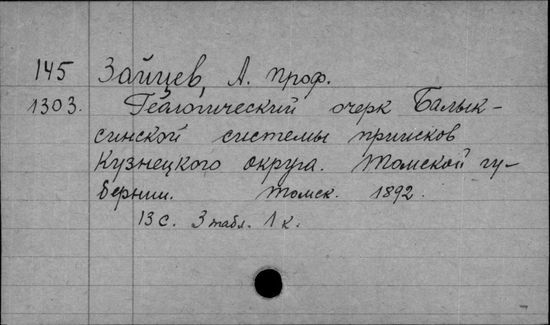 145 Зайцев, А. проф.
1303. Геологический очерк Балык-
синской системы приисков
Кузнецкого округа. Томской гу-
бернии. Томск. 1892.
13 с. 3 табл. 1 к.